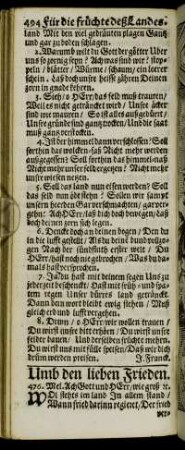 494 Für die früchte deß Landes.
land Mit den viel gedräuten plagen Gantz
und gar zu boden schlagen.
2. Warumb wilt du Gott der götter Uber
uns so zornig seyn? Ach was sind wir? stop-
peln/ blätter/ Würme/ schaum/ ein leerer
schein/ Laß doch uns
zorn in gnade kehren.
3. Sieh/ o HErr/ das feld muß trauren/
Weil es nicht getränckt wird/ Unsre äcker
sind mit mauren/ So ist alles außgedörrt/
Unsre gründe sind gantz trocken/ Und die saat
muß gantz verstocken.
4. Ist der himmel dann verschlossen? Soll
forthin das wilde Nicht mehr werden
außgegossen? Soll forthin das himmel-naß
Nicht mehr unsre felder gegen? Nicht mehr
unsre wiesen
5. Soll das land nun eisen werden? Soll
das feld nun öde stehen? Sollen wir sampt
unsern heerden Gar verschmachten/ gar ver-
gehn? Ach HErr/ laß dich doch bewegen/ laß
doch deinen zorn sich legen.
6. Dencke doch an deinen bogen/ Den du
in die lufft gestellt/ Als du deine
Nach der sündfluth erster welt/ O
HErr/ hast noch nie gebrochen/ Was du da-
mals hast versprochen.
7. Ja Du hast mit deinem segen Uns zu
jederzeit beschenckt/ Hast mit früh- und spa-
tem regen Unsre dürres land getränckt.
Dann dein wort bleibt ewig stehen/ Muß
gleich erd und lufft vergehen.
8. Drum/ o HErr/ wir wollen trauen/
Du wirst unsre bitt erhören/ Du wirst unsre
felder bauen/ Und derselben früchte mehrn.
Du wirst uns mit fülle speisen/ Daß wir dich
drüm werden preisen. J. Franck.
Umb den lieben Frieden.
476. Mel. Ach Gott und HErr/ wie groß rc.
WOl stehts im land In allem stand/
Wann fried darinn regieret/ Der fried